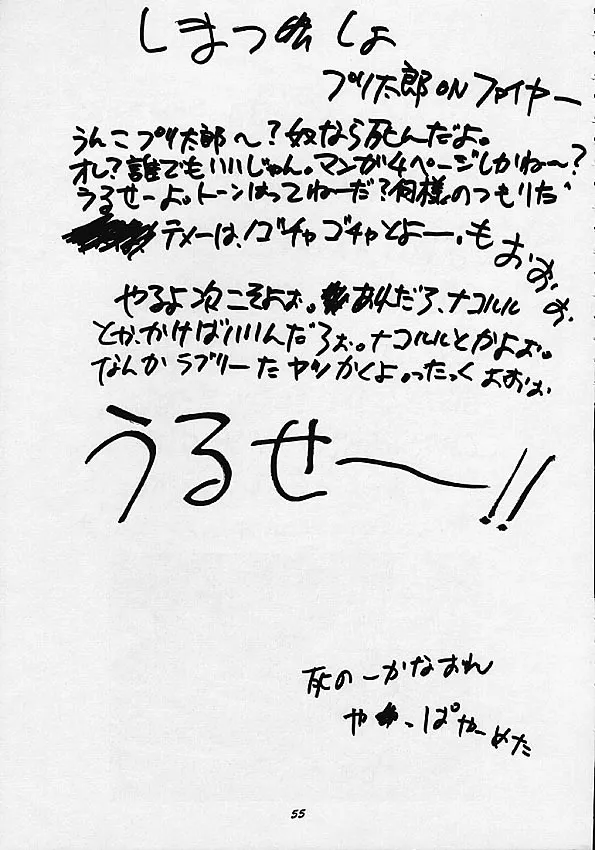 しまつ書しょ
プリ太郎 ON ファイヤー
うんこプリ太郎〜?奴なら死んだよ。
オレ?誰でもいいじゃん。マンガ4ページしかね〜?
うるせーよ。トーンはってねーだ?何様のつもりだ
テメーは、ゴチャゴチャとよー、もおおおお。
やるよ次こそよお。あれだろ、ナコルル
とか、かけばいいんだろお。ナコルルとかよお。
なんかラブリーたヤツかくよ。ったっくよおお
うるせ〜!!
灰の一かなおれ
や っぱやーめた
55